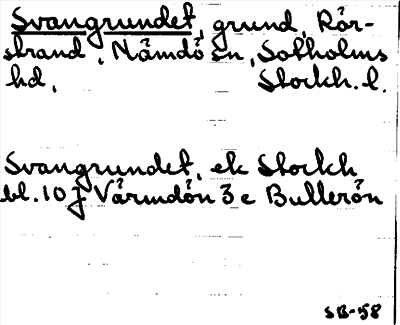 Svangrundet, grund, Rör-
strand, Nämdö sn, Sotholms
hd, Stockh. l.
Svangrundet, ek Stockh
bl. 10 j Värmdön 3 e Bullerön
SB-58